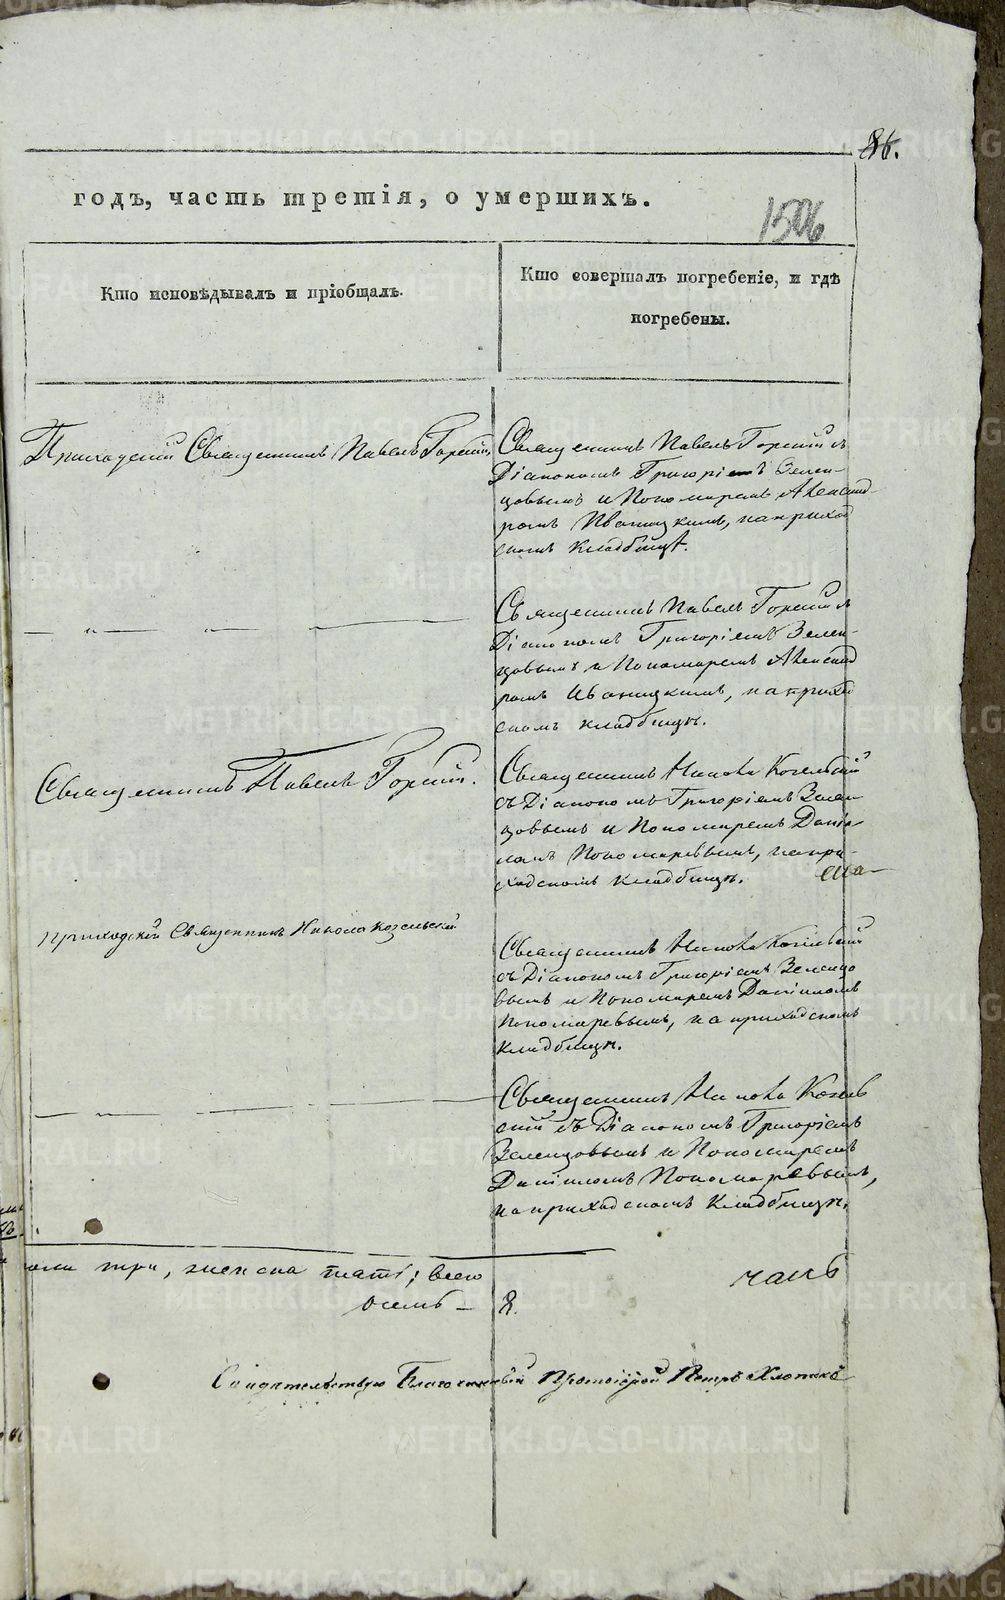 86.
годъ, часть третія, о умершихъ.
1506
Кто исповѣдывалъ и пріобщалъ.
Кто совершалъ погребеніе, и гдѣ
погребены.
Приходскій Священникъ Павелъ Горскій
Священникъ Павелъ Горскій съ
Діакономъ Григоріемъ Зелен-
цовымъ и Пономаремъ Александ-
ромъ Иваницкимъ, на приход
скомъ кладбищѣ.
— „ — — —
Священникъ Павелъ Горскій съ
Діакономъ Григоріемъ Зелен-
цовымъ и Пономаремъ Александ
ромъ Иваницкимъ, на приход
скомъ кладбищѣ.
Священникъ Павелъ Горскій.
Священникъ Никола Козельскій
съ Діакономъ Григоріемъ Зелен-
цовымъ и Пономаремъ Даніи-
ломъ Пономаревымъ, на при-
ходскомъ кладбищѣ.
приходскій Священникъ Никола Козельскій
Священникъ Никола Козельскій
съ Діакономъ Григоріемъ Зеленцо
вымъ и Пономаремъ Даніиломъ
Пономаревымъ, на приходскомъ
кладбищѣ.
— „ — — —
Священникъ Никола Козель
скій съ Діакономъ Григоріемъ
Зеленцовымъ и Пономаремъ
Даніиломъ Пономаревымъ,
на приходскомъ кладбищѣ.
три, женска пять; всего
осемь — 8.
Свидѣтельствую Благочинный Протоіерей Петръ
METRIKI.GASO-URAL.RU